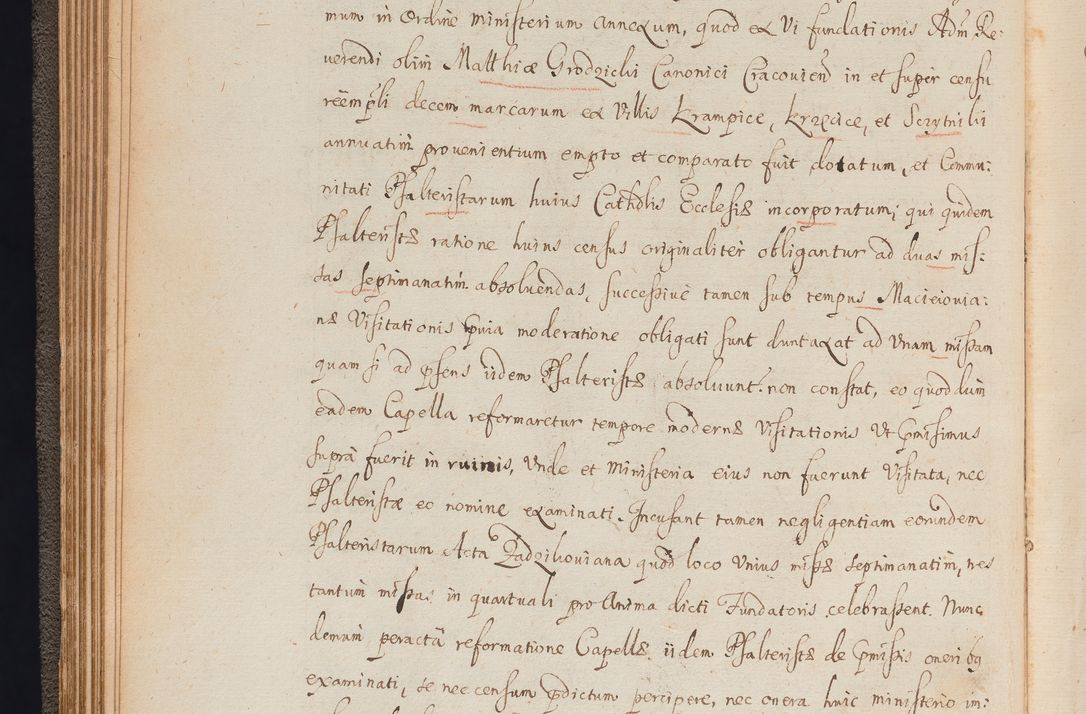 mum in Ordine ministerium annexum, quod ex Vi fundationis Adm̃ Re:
uerendi olim Matthiæ Grodzicki Canonici Cracouien̄ in et super censu
reempt̃li decem marcarum ex Villis Krampice, Krzecice, et Sczytniki
annuatim prouenientium empto et comparato fuit dotatum, et Commu:
nitati Psalteristarum huius Cathdlis Ecclesię incorporatum; qui quidem
Psalteristę ratione huius census originaliter obligantur ad duas mis:
sas septimanatim absoluendas, successiuè tamen sub tempus Macieiouia:
nę Visitationis p̃uia moderatione obligati sunt duntaxat ad Vnam missam
quam si ad p̃sens iidem Psalteristę absoluunt? non constat, eo quod dum
eadem Capella reformaretur tempore modernę Visitationis Vt p̃misimus
suprà fuerit in ruinis, Vnde et Ministeria eius non fuerunt Visitata, nec
Psalteristæ eo nomine examinati. Incusant tamen negligentiam eorundem
Psalteristarum Acta Zadzikouiana quòd loco Vnius missę septimanatim, tres
tantum missas in quartuali pro Anima dicti Fundatoris celebrassent. Nunc
demum peractâ reformatione Capellę iidem Psalteristę de p̃missis oneribq
examinati, se nec censum p̃dictum percipere, nec onera huic ministerio in: